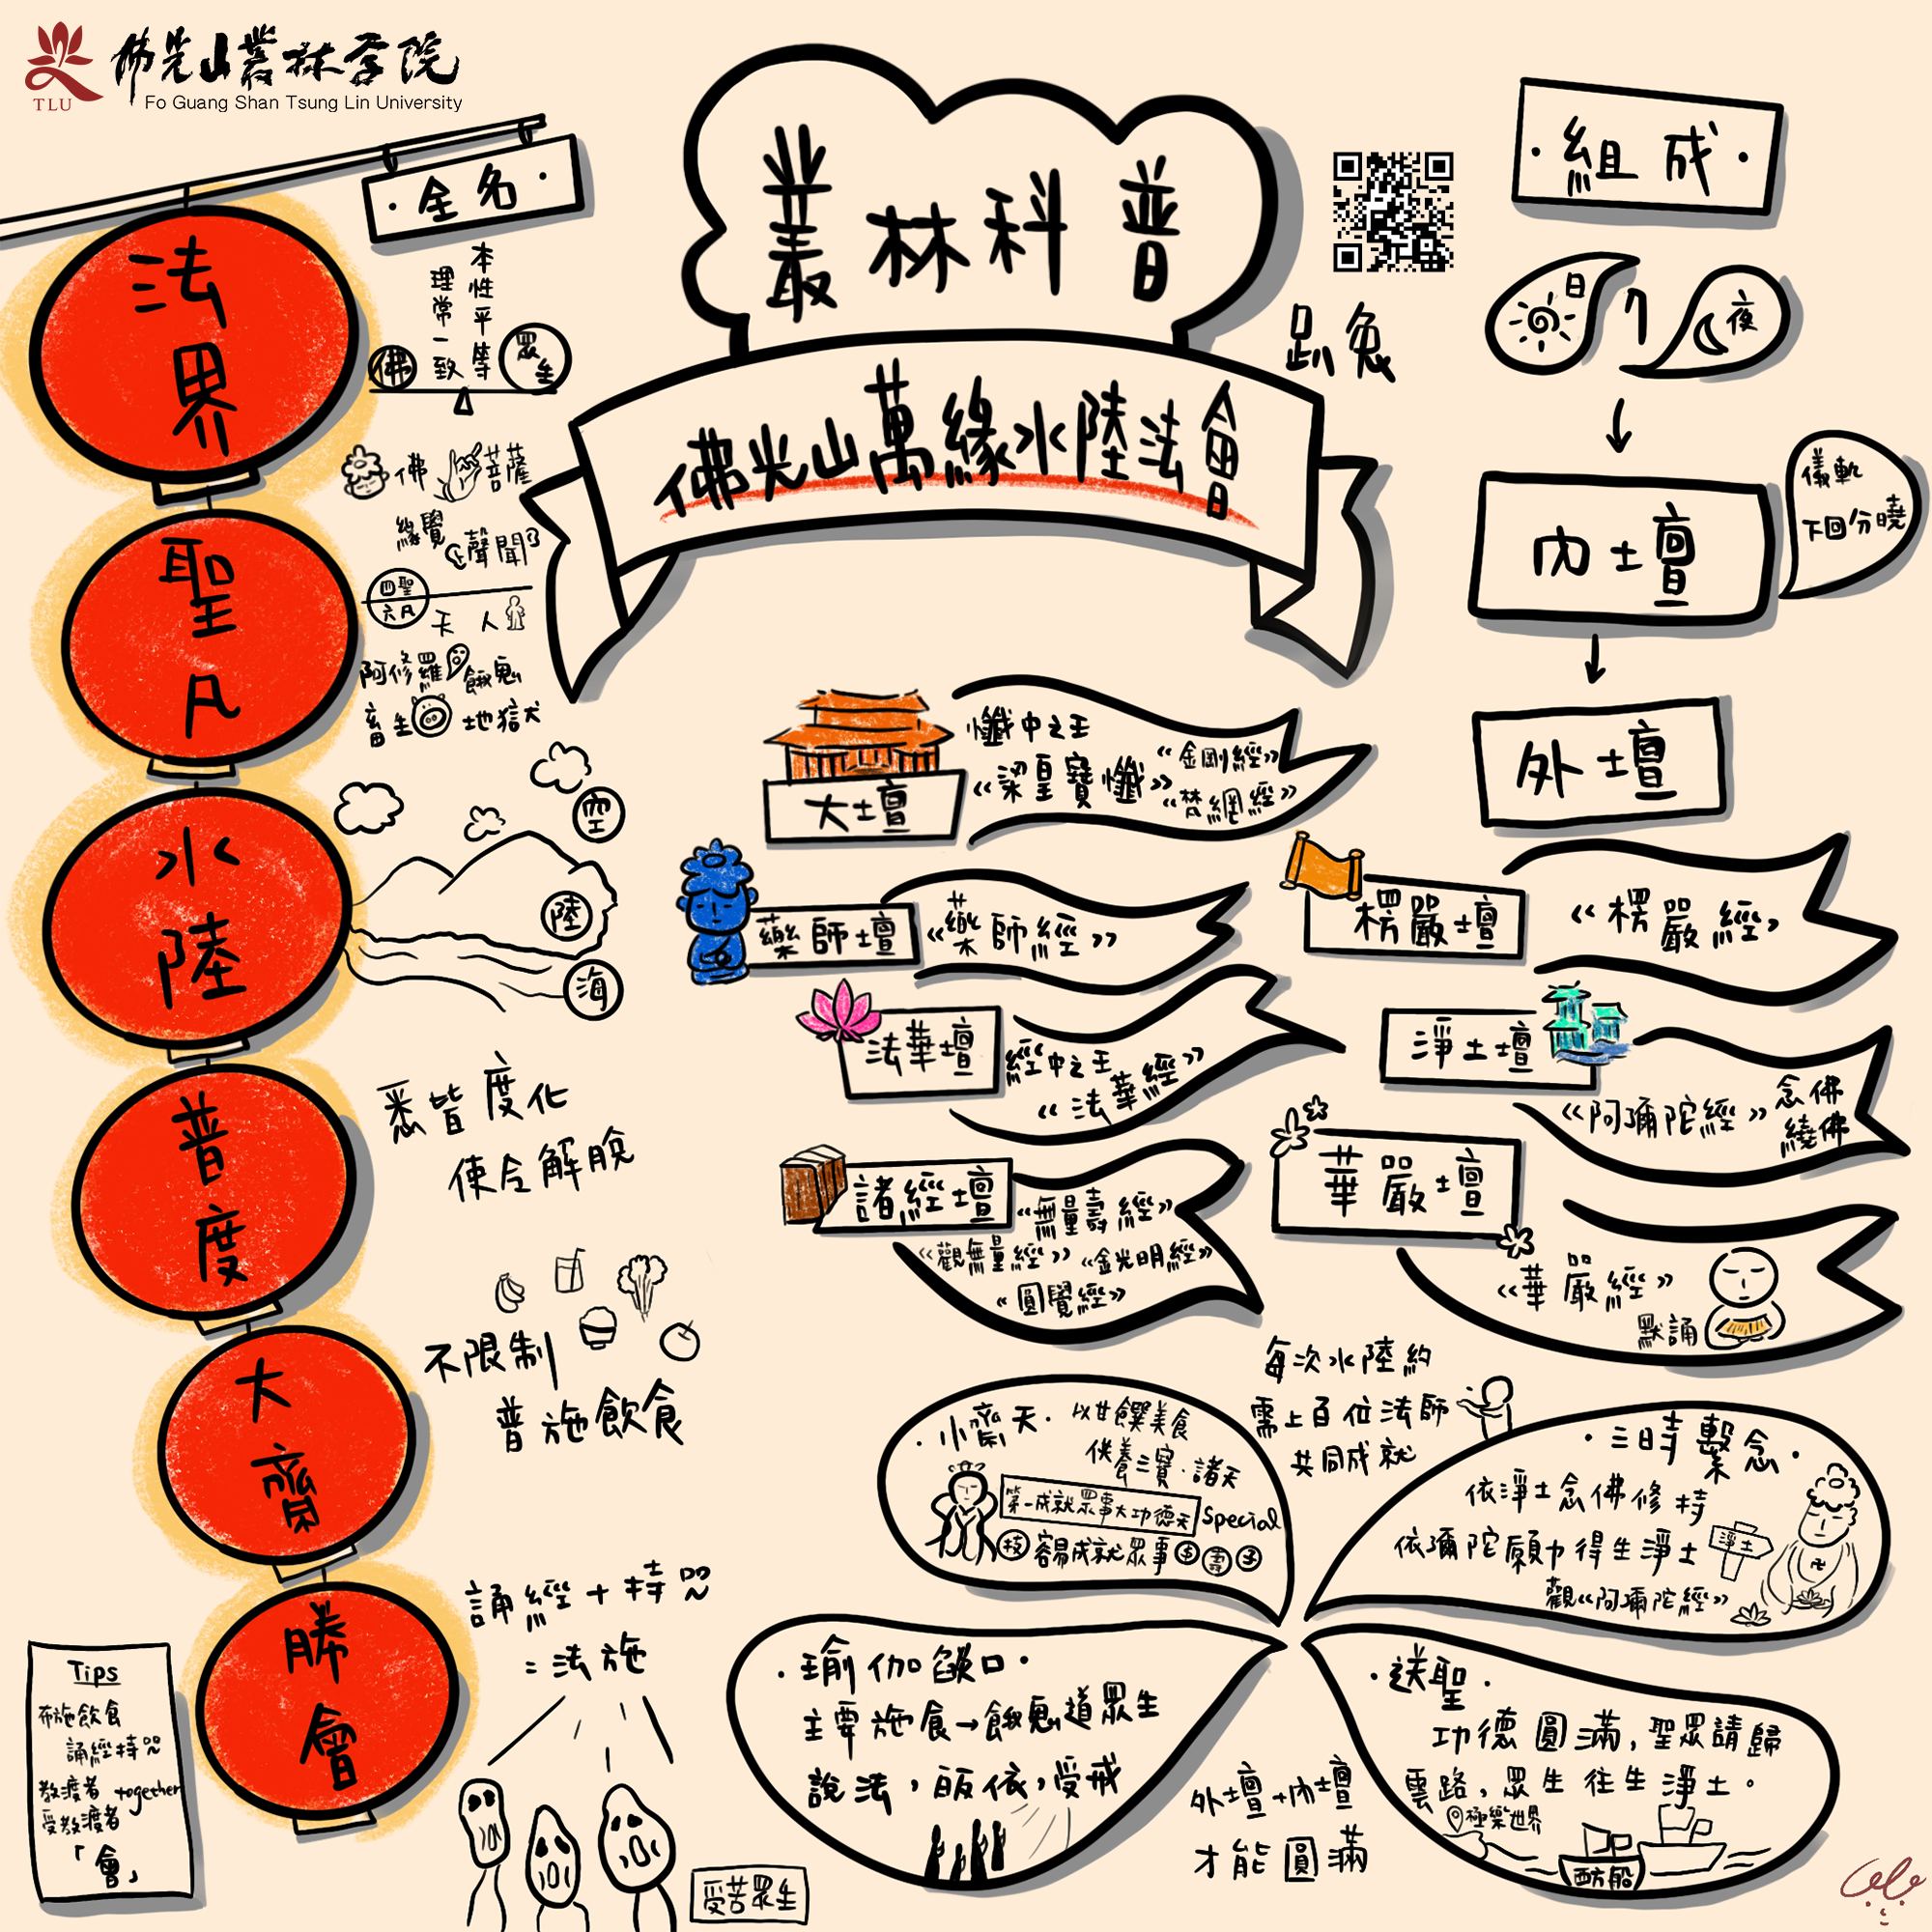 佛光山叢林学院
TLU
Fo Guang Shan Tsung Lin University
叢林科普
佛光山萬緣水陸法會
·全名·
法界
本性平等
理常一致
佛
眾生
聖凡
佛
菩薩
緣覺
聲聞
四聖
六凡
天
人
阿修羅
餓鬼
畜生
地獄
水陸
空
陸
海
普度
悉皆度化
使令解脫
大齋
不限制
普施飲食
勝會
誦經+持咒
=法施
受苦眾生
Tips
布施飲食
誦經持咒
教渡者 together
受教渡者
「會」
·組成·
日
夜
內壇
儀軌
下回分曉
外壇
大壇
懺中之王
《梁皇寶懺》
《金剛經》
《梵網經》
藥師壇
《藥師經》
楞嚴壇
《楞嚴經》
法華壇
經中之王
《法華經》
淨土壇
《阿彌陀經》
念佛
繞佛
諸經壇
《無量壽經》
《觀無量經》
《金光明經》
《圓覺經》
華嚴壇
《華嚴經》
默誦
每次水陸約
需上百位法師
共同成就
·小齋天·
以甘饌美食
供養三寶·諸天
第一成就眾事大功德天
Special
技
容易成就眾事
$
壽
子
·三時繫念·
依淨土念佛修持
依彌陀願力得生淨土
淨土
觀《阿彌陀經》
·瑜伽燄口·
主要施食→餓鬼道眾生
說法，皈依，受戒
外壇+內壇
才能圓滿
·送聖·
功德圓滿，聖眾請歸
雲路，眾生往生淨土。
極樂世界
西方船